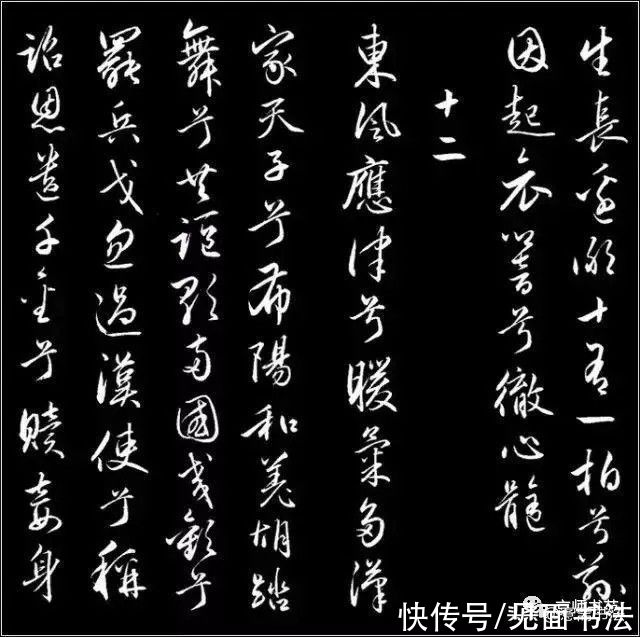 生長邊鄙十有一拍兮茲
因起哀響兮徹心髓
十二
東風應律兮暖氣多漢
家天子兮布陽和羌胡蹈
舞兮共謳歌兩國交歡兮
罷兵戈忽遇漢使兮稱
詔恩遺千金兮贖妾身
快传号/见面书法